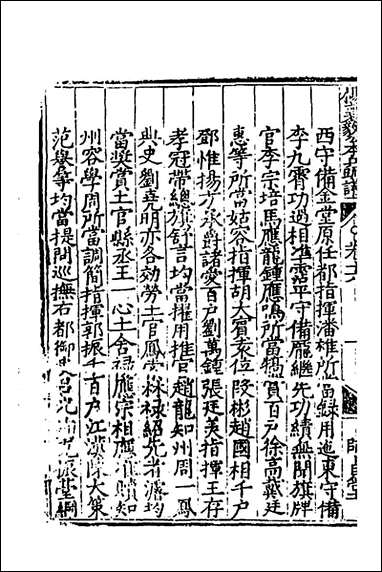 西守備金堂原任都指揮潘維所當録用迤東守備
李九霄功過相準霑平守備龎繼先功績無聞旗牌
官李宗培馬應龍鍾應鳴所當犒賞百户徐高戴廷
惠等所當姑容指揮胡大賓袁位段彬趙國相千户
鄧惟揚方承爵諸愛百户劉萬鍾張廷美指揮王存
孝冠帶總旗舒言均當擢用推官趙龍知州周一鳳
典史劉堯明亦各効勞土官鳳 禄紹先者濬均
當奬賞土官縣丞王一心土舍禄應崇相應准贖知
州容學周所當調簡指揮郭振千百户江漢陳大策
范舉等均當提問巡撫右都御史 堂綱